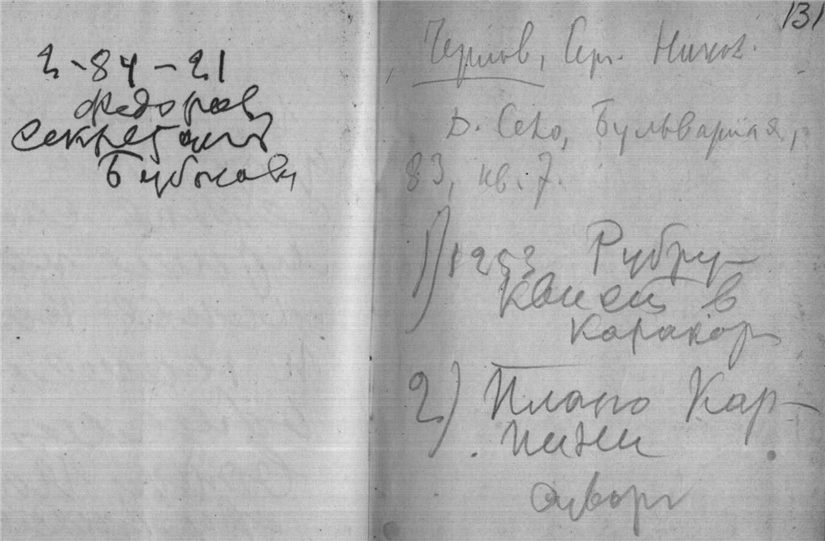 2-84-21
Федоров
Секретарь
Бубнова
131
Чернов, Серг. Никол.
Д. Село, Бульварная,
83, кв. 7.
1) 1253 Рубру-
квист в
Каракор
2) Плано Кар-
пини